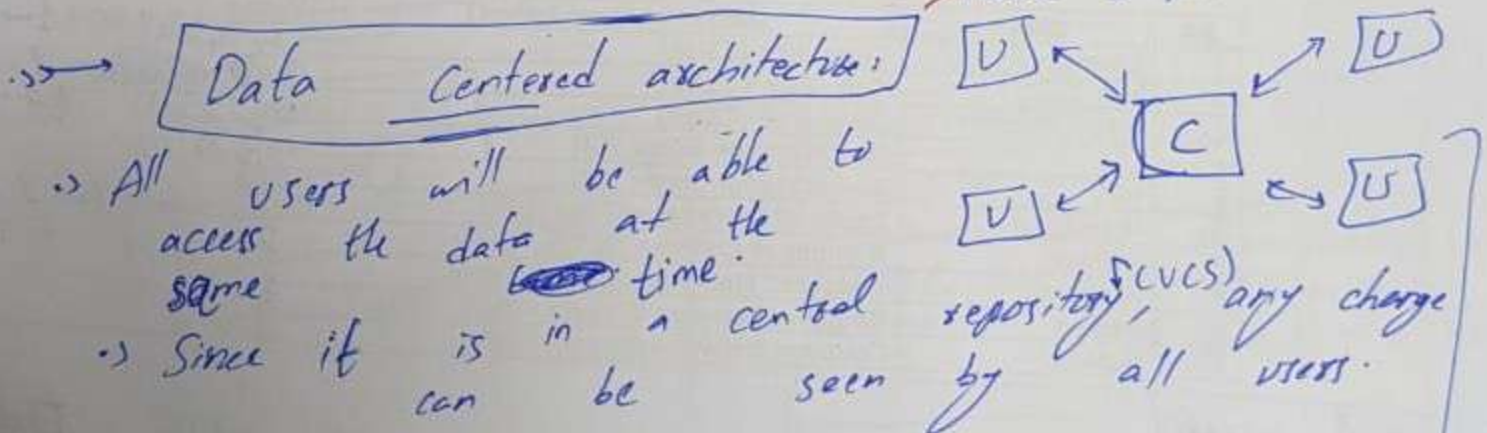 Data Centered architecture:
U U
C
U U
All users will be able to
access the data at the
same time.
Since it is in a central repository, (VCS) any change
can be seen by all users.